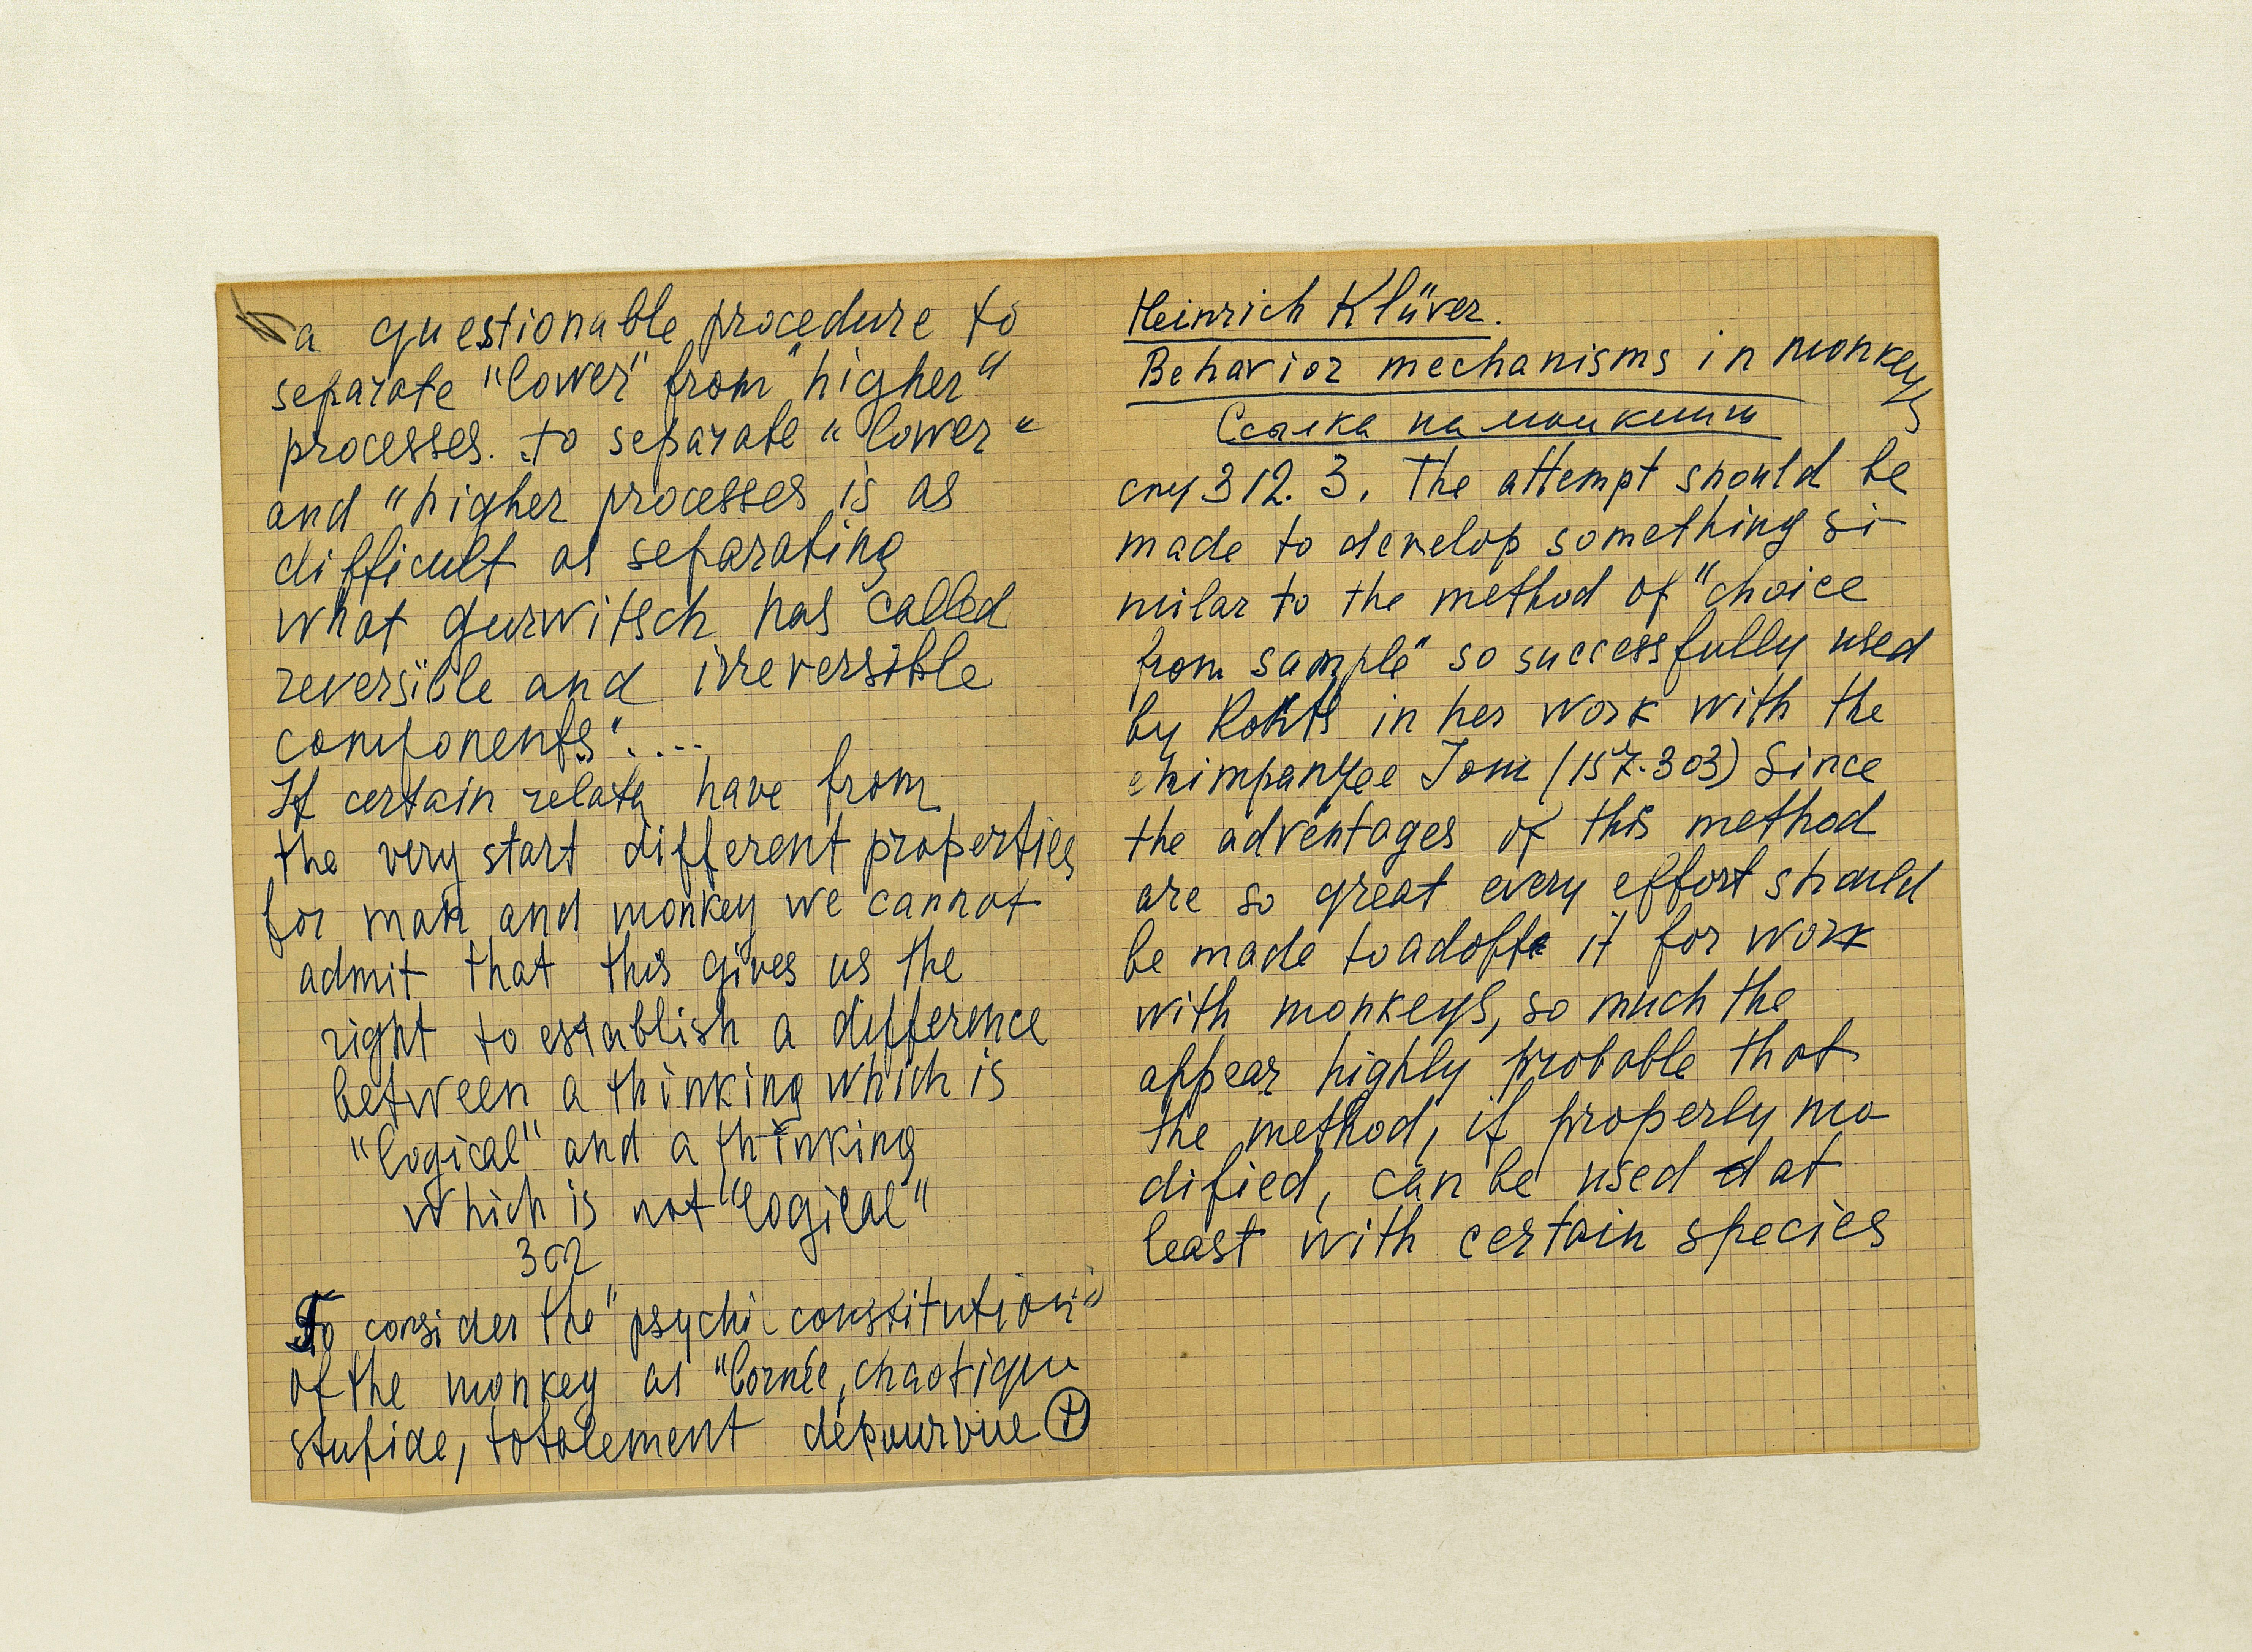 a questionable procedure to
separate "lower" from "higher"
processes. to separate "lower"
and "higher processes is as
difficult as separating
what gurwitsch has called
reversible and irreversible
components"....
If certain relata have from
the very start different properties
for man and monkey we cannot
admit that this gives us the
right to establish a difference
between a thinking which is
"logical" and a thinking
which is not "logical"
302
To consider the "psychic constitution"
of the monkey as "bornée, chaotique
stupide, totalement dépourvue +
Heinrich Klüver.
Behavior mechanisms in monkeys
Ссылка на мои книги
стр 312. 3. The attempt should be
made to develop something si-
milar to the method of "choice
from sample" so successfully used
by Rohts in her work with the
chimpanzee Joni (157.303) Since
the adventages of this method
are so great every effort should
be made to adopte it for work
with monkeys, so much the
appear highly probable that
the method, if properly mo-
dified, can be used at
least with certain species